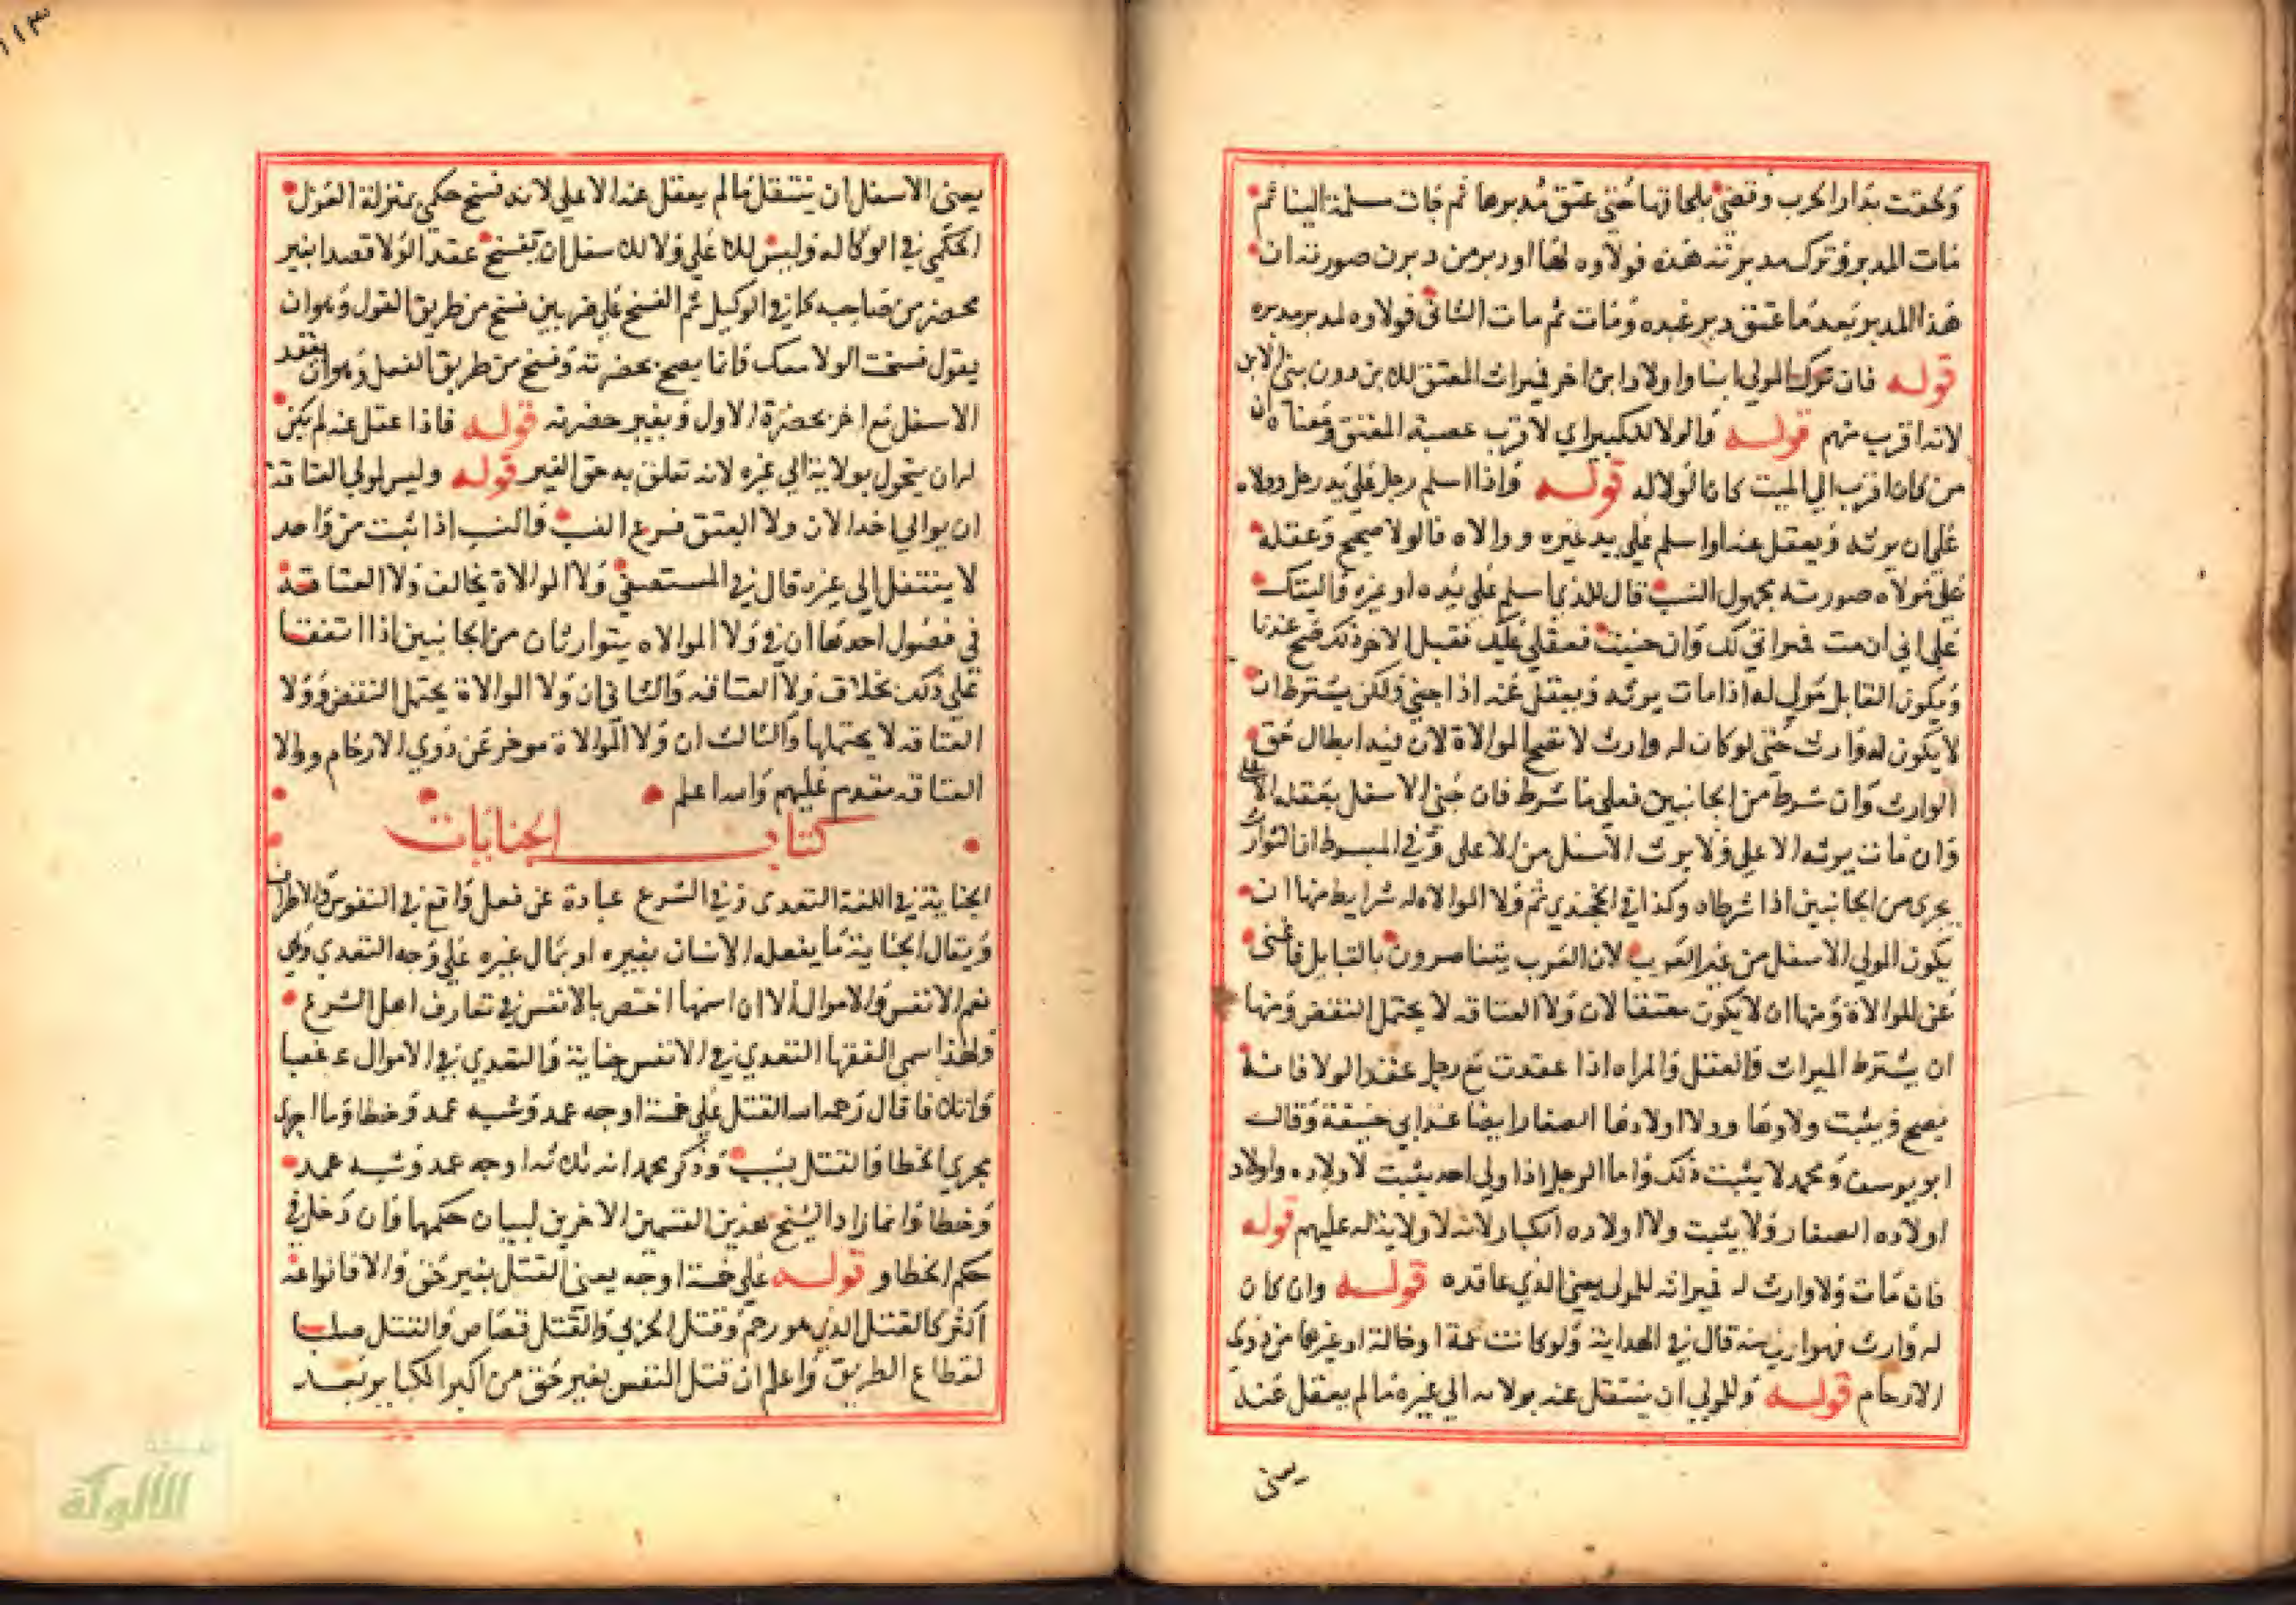 ولحقت بدار الحرب وقضي بلحاقها حتى عتق مدبرها ثم جات مسلمة الينا ثم
مات المدبر وترك مدبرته هذه فولاوه لها او دبر من دبرن صورته ان
هذا المدبر بعد ما عتق دبر عبده ومات ثم مات الثاني فولاوه لمدبر مدبره
قوله فان ترك المولى ابنا واولاد ابن اخر فميراث المعتق للابن دون بني الابن
لانه اقرب منهم قوله والولا للكبير اي لاقرب عصبة المعتق ومعناه ان
من كان اقرب الي الميت كان الولا له قوله واذا اسلم رجل علي يد رجل ووالاه
علي ان يرثه ويعقل عنه او اسلم علي يد غيره ووالاه فالولا صحيح وعقله
علي مولاه صورته مجهول النسب قال للذي اسلم علي يده او غيره واليتك
علي اني ان مت فميراثي لك وان جنيت فعقلي عليك فقبل الاخر ذلك صح عندنا
ويكون القابل مولي له اذا مات يرثه ويعقل عنه اذا جني ولكن يشترط ان
لا يكون له وارث حتى لو كان له وارث لا تصح الموالاة لان فيه ابطال حق
الوارث وان شرط من الجانبين فعلي ما شرط فان جني الاسفل يعقله الاعلى
وان مات يرثه الاعلى ولا يرث الاسفل من الاعلى وفي المبسوط ان التوارث
يجري من الجانبين اذا شرطاه وكذا في الخجندي ثم ولا الموالاه له شرايط منها ان
يكون المولي الاسفل من غير العرب لان العرب يتناصرون بالقبايل فاغنى
عن الموالاة ومنها ان لا يكون معتقا لان ولا العتاقه لا يحتمل النقض ومنها
ان يشترط الميراث والعقل والمراه اذا عقدت مع رجل عقد الولا فانه
يصح ويثبت ولاوها وولا اولادها الصغار ايضا عند ابي حنيفة وقال
ابو يوسف ومحمد لا يثبت ذلك واما الرجل اذا ولي احد يثبت لاولاده واولاد
اولاده الصغار ولا يثبت ولا اولاده الكبار لانه لا ولاية له عليهم قوله
فان مات ولا وارث له فميراثه للمولى يعني الذي عاقده قوله وان كان
له وارث فهو اولى منه قال في الهداية ولو كانت عمة او خالة او غيرها من ذوي
الارحام قوله وللمولي ان ينتقل عنه بولائه الي غيره ما لم يعقل عنه
يعنى
يعني الاسفل ان ينتقل ما لم يعقل عنه الاعلي لانه فسخ حكمي بمنزلة العزل
الحكمي في الوكاله وليس للاعلي ولا للاسفل ان يفسخ عقد الولا قصدا بغير
محضر من صاحبه كما في الوكيل ثم الفسخ علي ضربين فسخ من طريق القول وهو ان
يقول فسخت الولا معك فانما يصح بحضرته وفسخ من طريق الفعل وهو ان يعقد
الاسفل مع اخر بحضرة الاول وبغير حضرته قوله فاذا عقل عنه لم يكن
له ان يتحول بولايته الي غيره لانه تعلق به حق الغير قوله وليس لمولي العتاقة
ان يوالي احدا لان ولا العتق فرع النسب والنسب اذا ثبت من واحد
لا ينتقل الي غيره قال في المستصفى ولا الموالاة يخالف ولا العتاقة
في فصول احدها ان في ولا الموالاه يتوارثان من الجانبين اذا اتفقا
علي ذلك بخلاف ولا العتاقه والثاني ان ولا الموالاة يحتمل النقض وولا
العتاقه لا يحتملها والثالث ان ولا الموالاة موخر عن ذوي الارحام وولا
العتاقه مقدم عليهم والله اعلم
كتاب الجنايات
الجناية في اللغة التعدى وفي الشرع عبارة عن فعل واقع في النفوس والاطراف
ويقال الجناية ما يفعله الانسان بغيره او بمال غيره علي وجه التعدي وهي
تعم الانفس والاموال الا ان اسمها اختص بالانفس في تعارف اهل الشرع
ولهذا سمي الفقها التعدي في الانفس جناية والتعدي في الاموال غصبا
قال رحمه الله القتل علي خمسة اوجه عمد وشبه عمد وخطا وما اجري
مجري الخطا والقتل بسبب وذكر محمد انه ثلاثه اوجه عمد وشبه عمد
وخطا وانما زاد الشيخ هذين القسمين الاخرين لبيان حكمها وان دخل في
حكم الخطا و قوله علي خمسة اوجه يعني القتل بغير حق والا فانواعه
اكثر كالقتل الذي هو رجم وقتل الحربي والقتل قصاص والقتل صلبا
لقطاع الطريق واعلم ان قتل النفس بغير حق من اكبر الكباير بعد
الألوكة